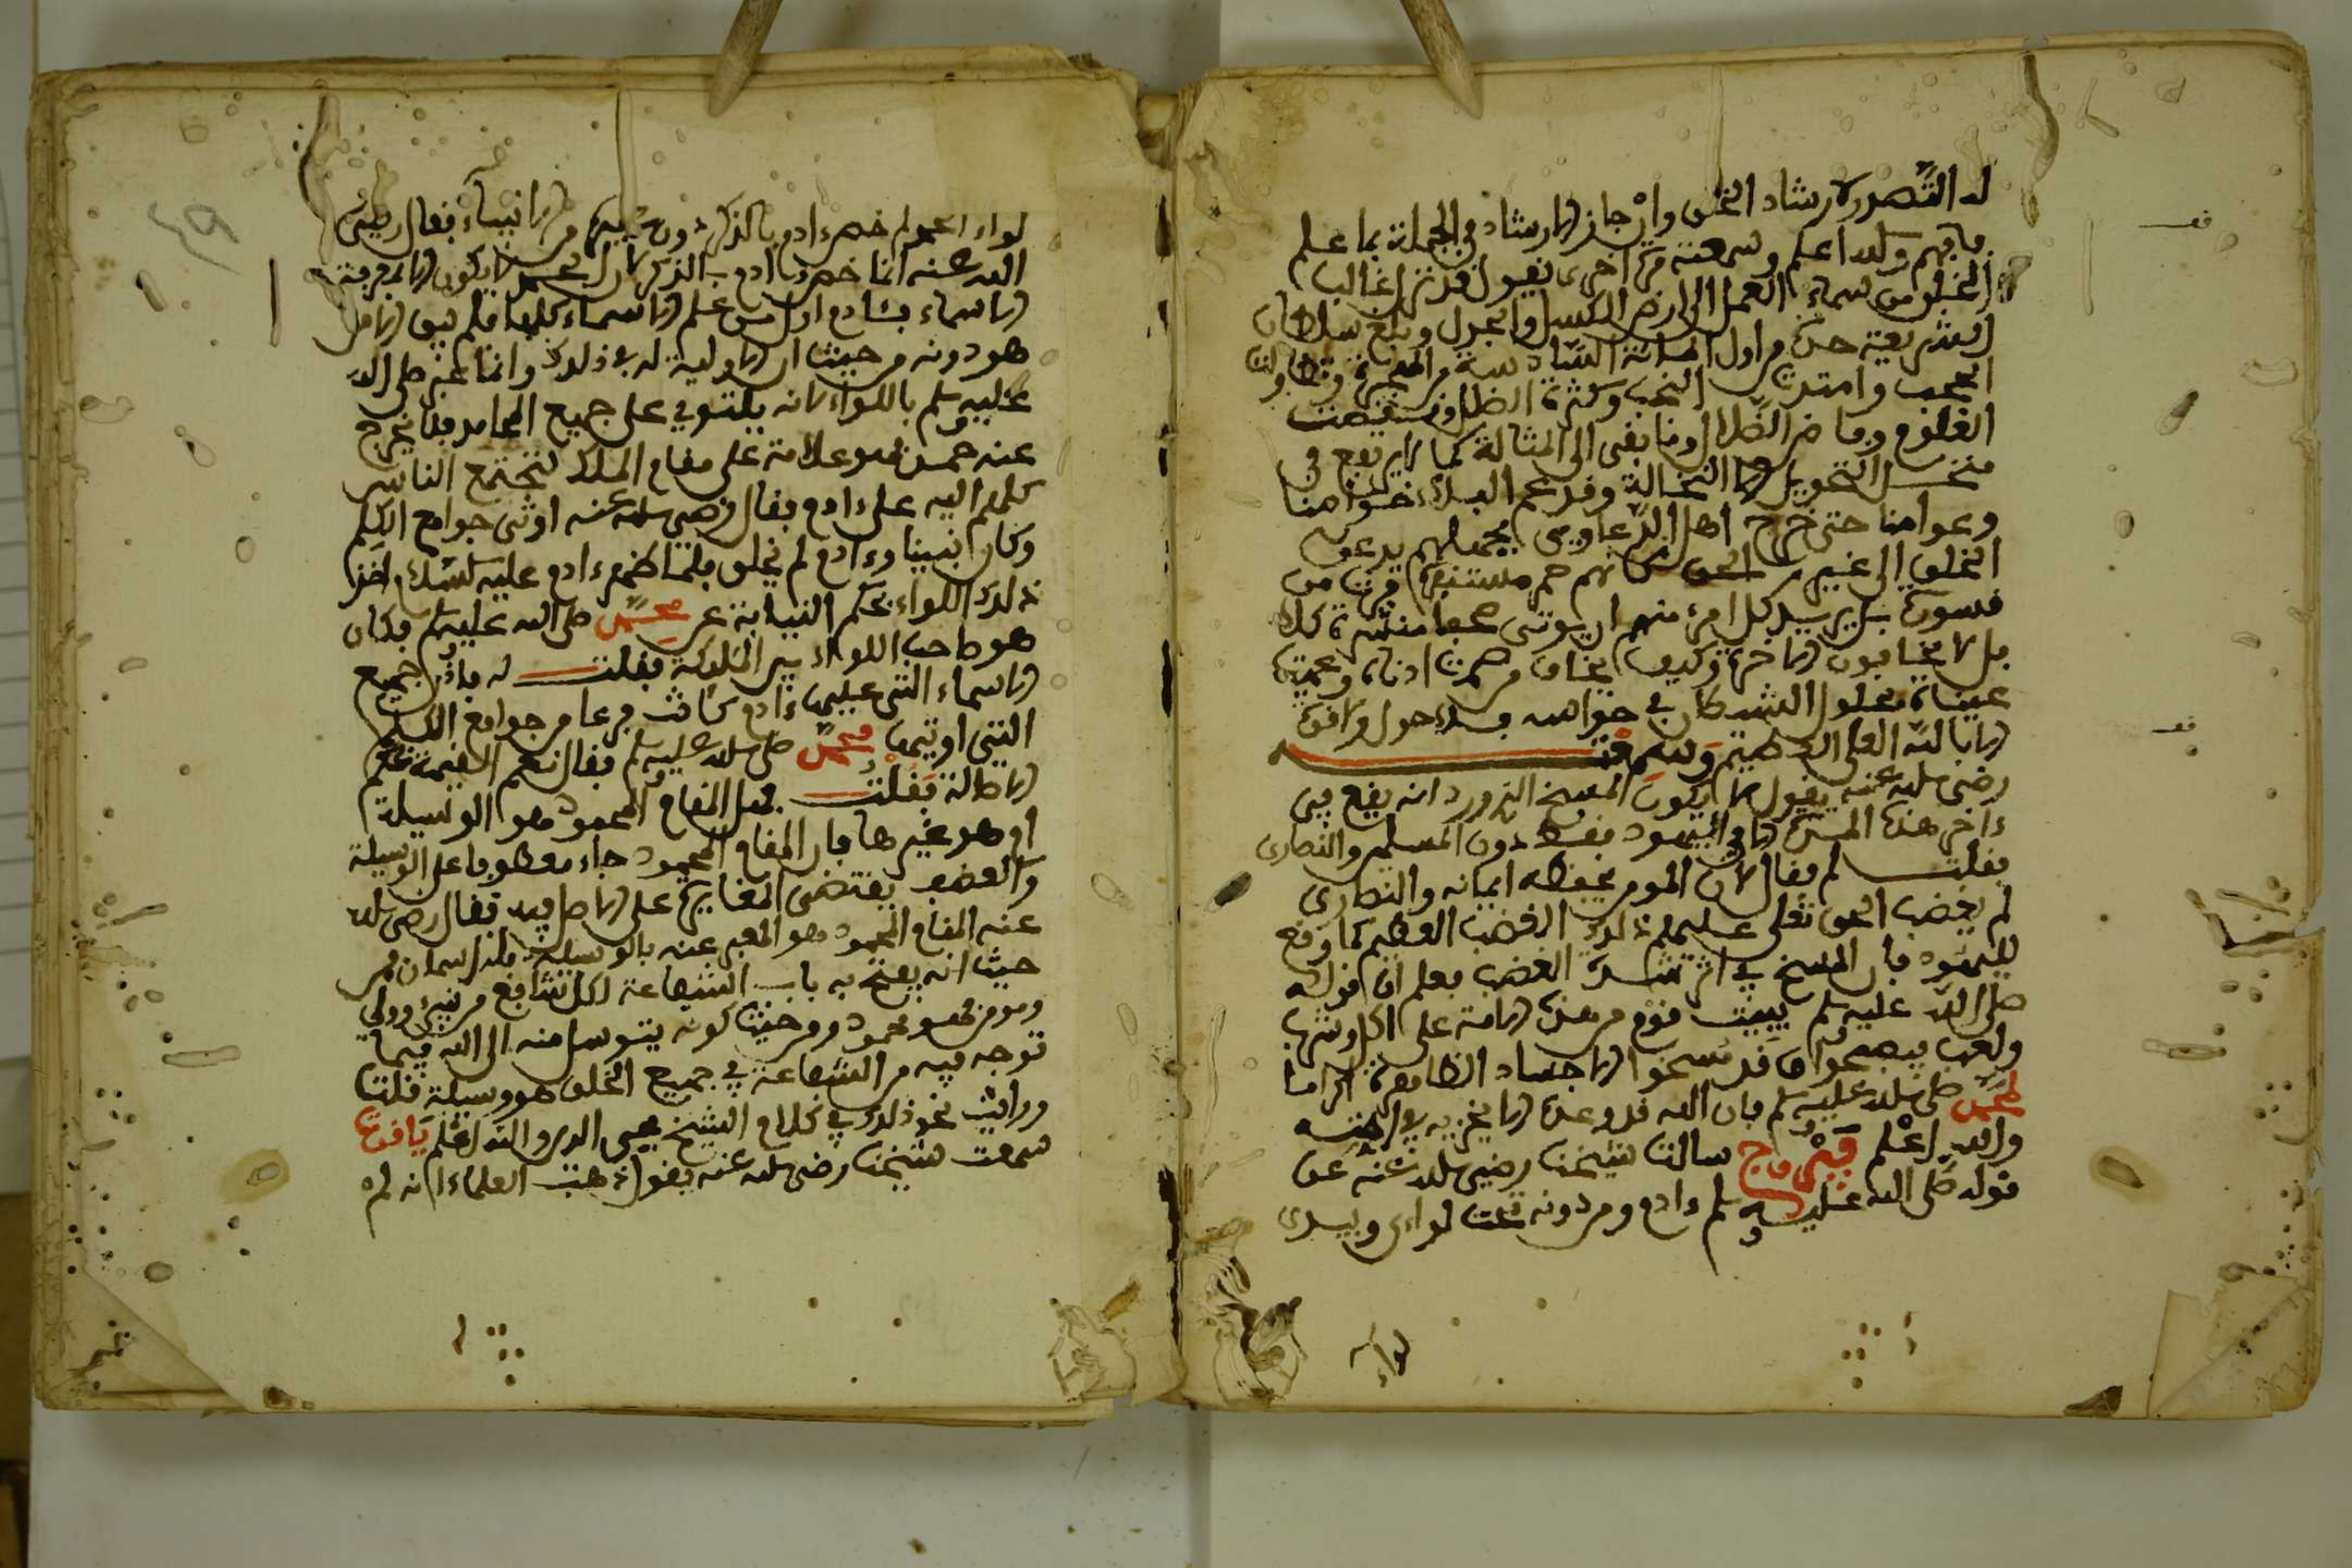 له التصدر لارشاد الخلق وان جاز الارشاد في الجملة بما علم
فافهم والله اعلم وسمعته مرة اخرى يقول قد نزل غالب
الخلق من سماء العمل الى ارض الكسل والجدل وبلغ سلطان
الشريعة حده من اول المائة السادسة من الهجرة وتطاولت
الحجب وامتدت النحب وكثرة الظل ونقصت
العلوم وفاض الضلال وما بقى الى المثالة كما لا يرتفع في
منخل النخويل الا النخالة وقد عم البلاء خواصنا
وعوامنا حتى خرج اهل الدعاوي بجهلهم يدعون
الخلق الى غير الحق كانهم حمر مستنفرة فرت من
قسورة بل يريد كل امرئ منهم ان يوتى صحفا منشرة كلا
بل لا يخافون الاخرة وكيف يخاف من صمت اذناه وعميت
عيناه بحلول الشيطان في حواسه فلا حول ولا قوة
الا بالله العلي العظيم وسمعته
رضي الله عنه يقول لا يكون المسخ الذي ورد انه يقع في
ءاخر هذه الامة الا في اليهود فقط دون المسلمين والنصارى
فقلت لم فقال لان المومن يحفظه ايمانه والنصارى
لم يغضب الحق تعلى عليهم ذلك الغضب العظيم كما وقع
لليهود فان المسخ في اثر شدة الغضب فعلم ان قوله
صلى الله عليه وسلم يبيت قوم من هذه الامة على اكل وشرب
ولعب فيصبحوا قد مسخوا الاجساد الظاهرة اكراما
لمحمد صلى الله عليه وسلم فان الله قد وعده الا يخزيه في امته
والله اعلم فيروزج سالت شيخنا رضي الله عنه عن
قوله صلى الله عليه وسلم ءادم ومن دونه تحت لواءي وبيدي
لواء الحمد لم خص ءادم بالذكر دون غيره من الانبياء فقال رضي
الله عنه انما خص ءادم بالذكر لان الحمد لا يكون الا بمعرفة
الاسماء فئادم اول من علم الاسماء كلها فلم يبق الا من
هو دونه من حيث ان الاولية له في ذلك وانما عبر صلى الله
عليه وسلم باللواء لانه يلتوي على جميع المحامد فلا يخرج
عنه حمد فهو علامة على مقام الملك لتجتمع الناس
كلهم اليه على ءادم فقال رضي الله عنه اوتي جوامع الكلم
وكان نبينا وءادم لم يخلق فلما ظهر ءادم عليه السلام اخذ
ذلك اللواء بحكم النيابة عن محمد صلى الله عليه وسلم فكان
هو صاحب اللواء بين الملائكة فقلت له فاذن جميع
الاسماء التي علمها ءادم كانت فرعا من جوامع الكلم
التي اوتيها محمد صلى الله عليه وسلم فقال نعم
الاصالة فقلت فهل المقام المحمود هو الوسيلة
او هو غيرها فان المقام المحمود جاء معطوفا على الوسيلة
والعطف يقتضي المغايرة على الاصل فيه فقال رضي الله
عنه المقام المحمود هو المعبر عنه بالوسيلة فله اسمان فمن
حيث انه يفتح به باب الشفاعة لكل شافع من نبي وولي
ومومن فهو محمود ومن حيث كونه يتوسل منه الى الله فيما
توجه فيه من الشفاعة في جميع الخلق هو وسيلة قلت
ورايت نحو ذلك في كلام الشيخ محيي الدين والله اعلم ياقوت
سمعت شيخنا رضي الله عنه يقول ذهب العلماء انه لم